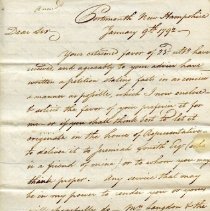 Portsmouth New Hampshire
January 9th 1792
Dear Sir
Your esteemed favor of 23d ult have
and agreeably to your advice have
written a petition stating facts in as concise
a manner as possible, which I now enclose
& solicit the favor of your prefering it for
me or if you shall think best to let it
originate in the house of Representatives
to deliver it to Jeremiah Smith Esq (who
is a friend of mine) or to whom you may
think proper. Any service that may
be in my power to render you or yours
Mrs Langdon & the